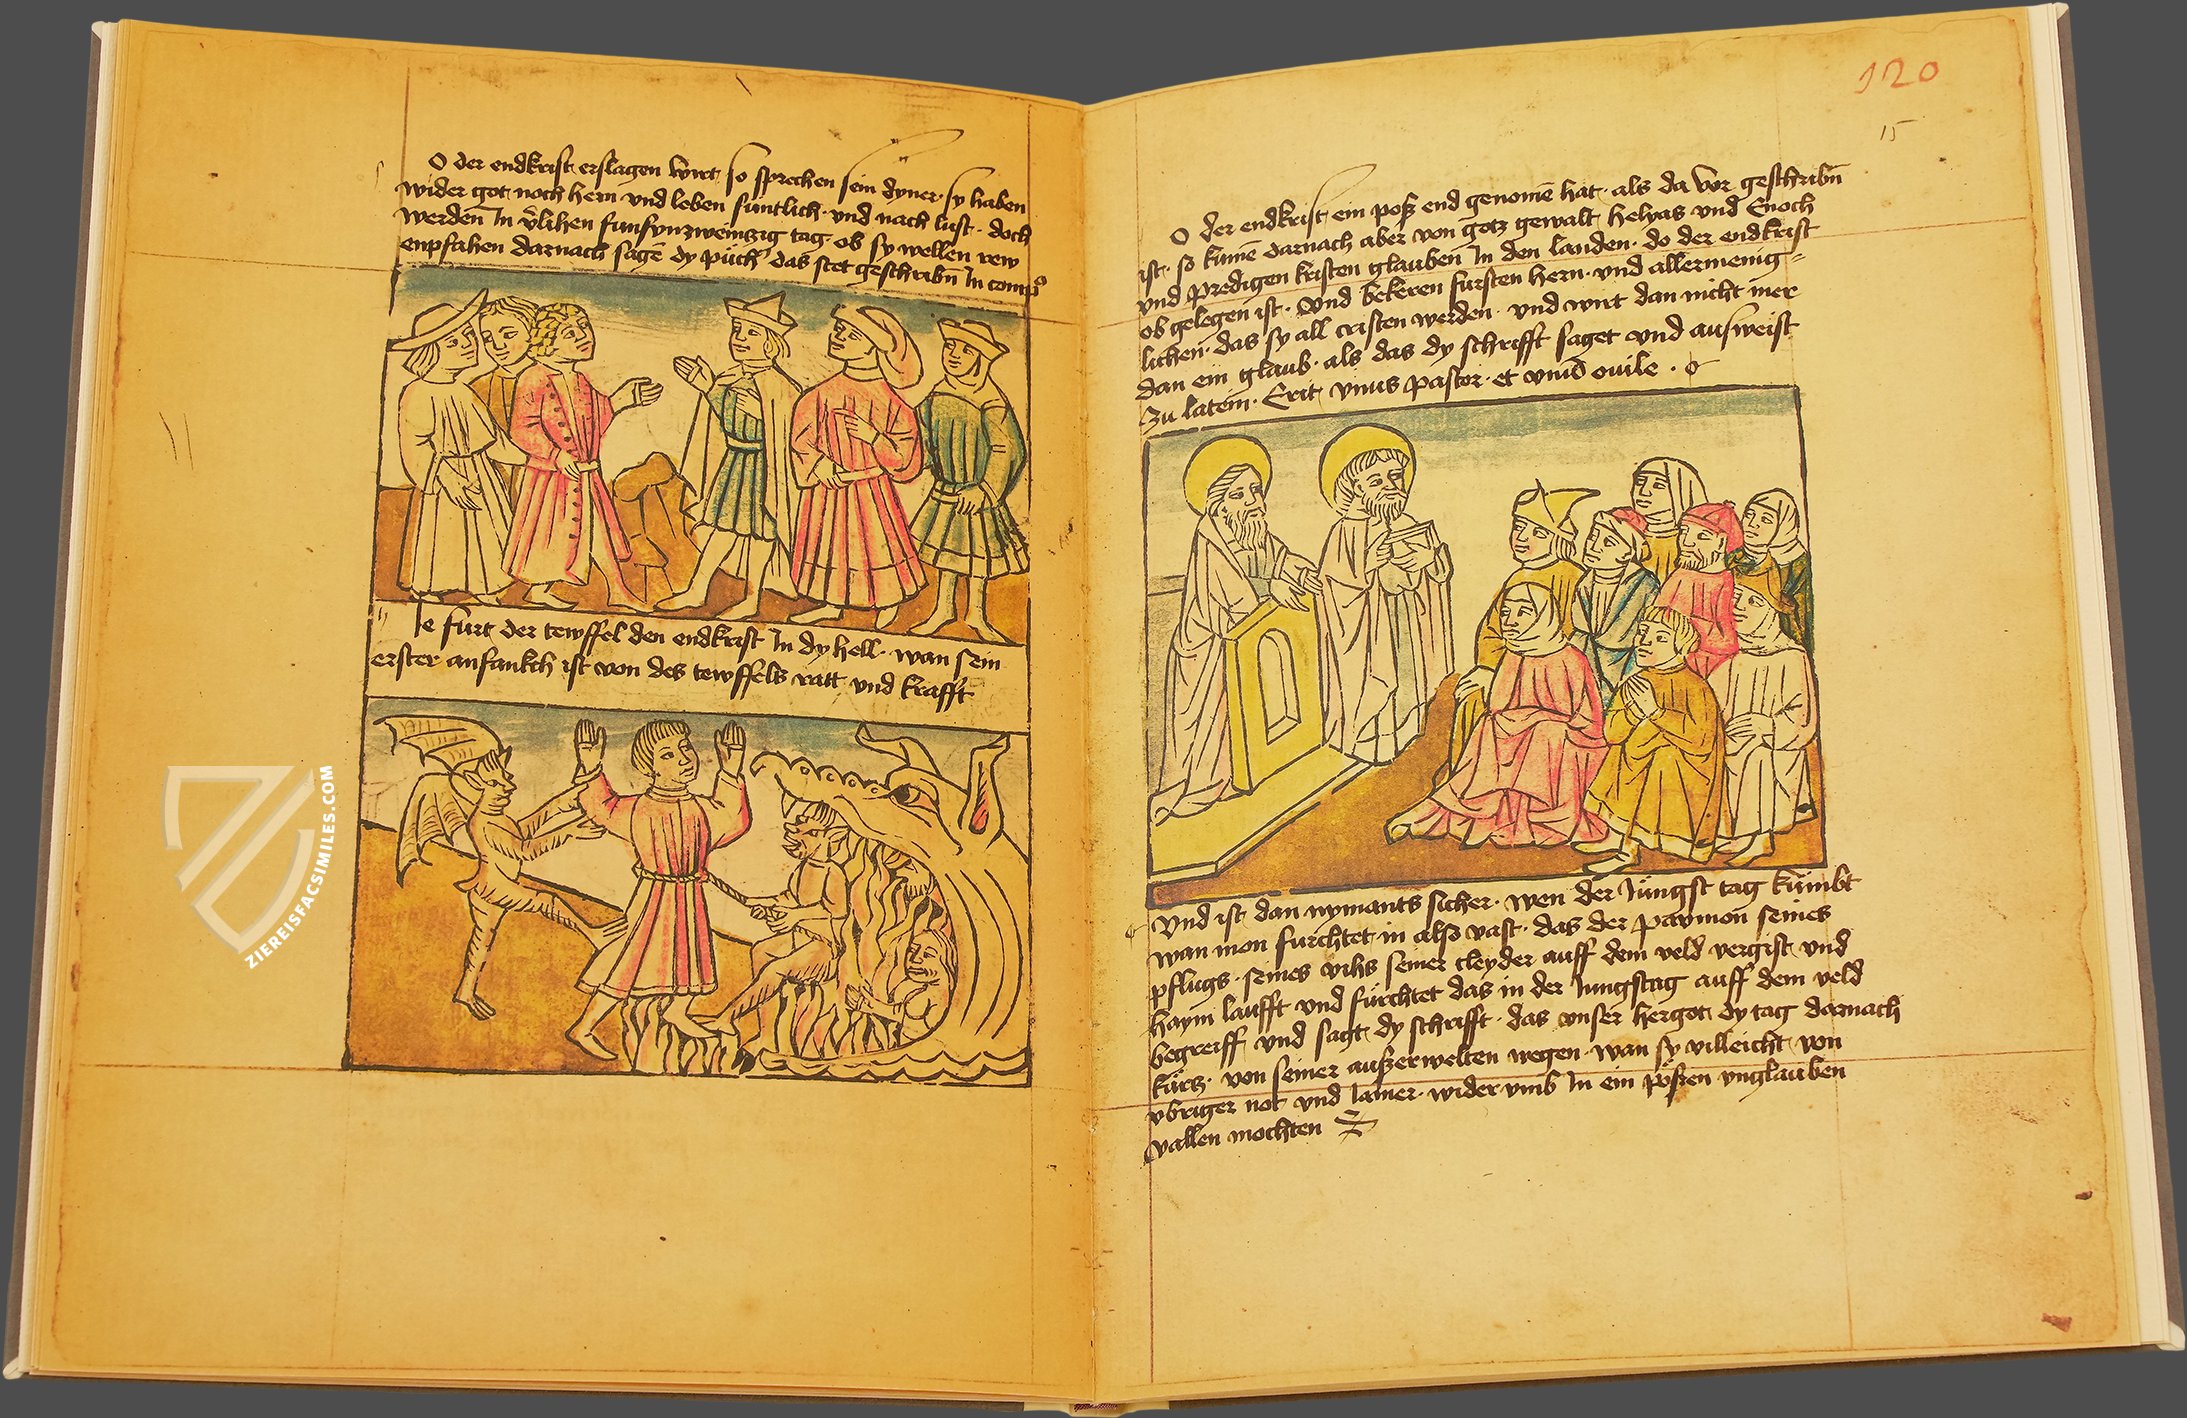 O der endkrist erslagen wirt so sprechen sein dyner sy haben
wider got noch hern · und leben suntlich · und nach lust · doch
werden In v̈lihen funfunzweinzig tag · ob sy wellen rew
enpfahen darnach sagē dy püch das stet geschribn̄ In comp
Ie furt der tewffel den endkrist In dy hell · wan sein
erster anfankch ist von des tewffels ratt vnd krafft
ZIEREISFACSIMILES.COM
120
15
O der endkrist ein poß end genomē hat · als da vor geschribn̄
ist · so kumē darnach aber von gotz gewalt helyas vnd Enoch
vnd predigen kristen glauben In den landen · do der endkrist
ob gelegen ist · Vnd bekeren fursten hern · vnd allermenig-
lichen · das sy all cristen werden · vnd wirt dan nicht mer
dan ein glaub · als das dy schrifft saget vnd ausweist
zu latein · Erit vnus pastor · et vnū ouile ·
Vnd ist dan nymants sicher · wen der Jüngst tag kümbt
wan mon furchtet in also vast · das der pawmon seines
pflugs · seines vihs seiner cleyder auff dem veld vergist vnd
haym laufft vnd fürchtet das in der Jungstag auff dem veld
begreiff vnd sagt dy schrifft · das vnser hergot dy tag darnach
kürtz · von seiner außerwelten wegen · wan sy villeicht von
vbriger not vnd Jamer · wider vmb In ein pößen vnglauben
vallen mochten